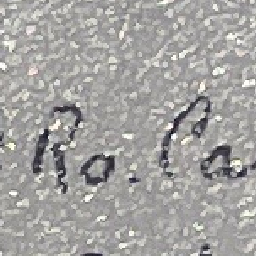 Ro. Ca